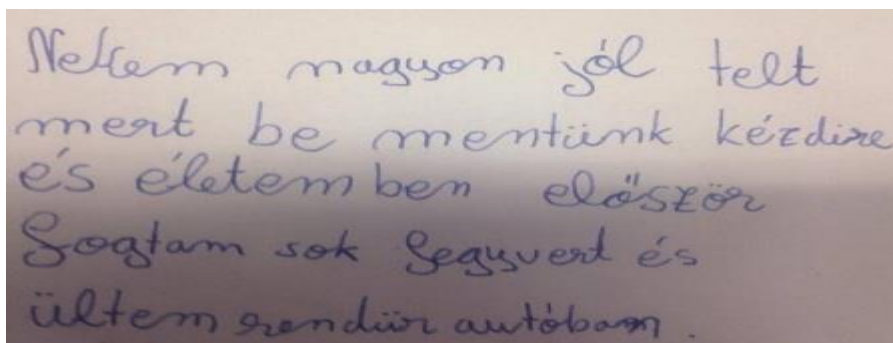 Nekem nagyon jól telt
mert be mentünk kézdire
és életem ben először
fogtam sok fegyvert és
ültem rendür autóban.